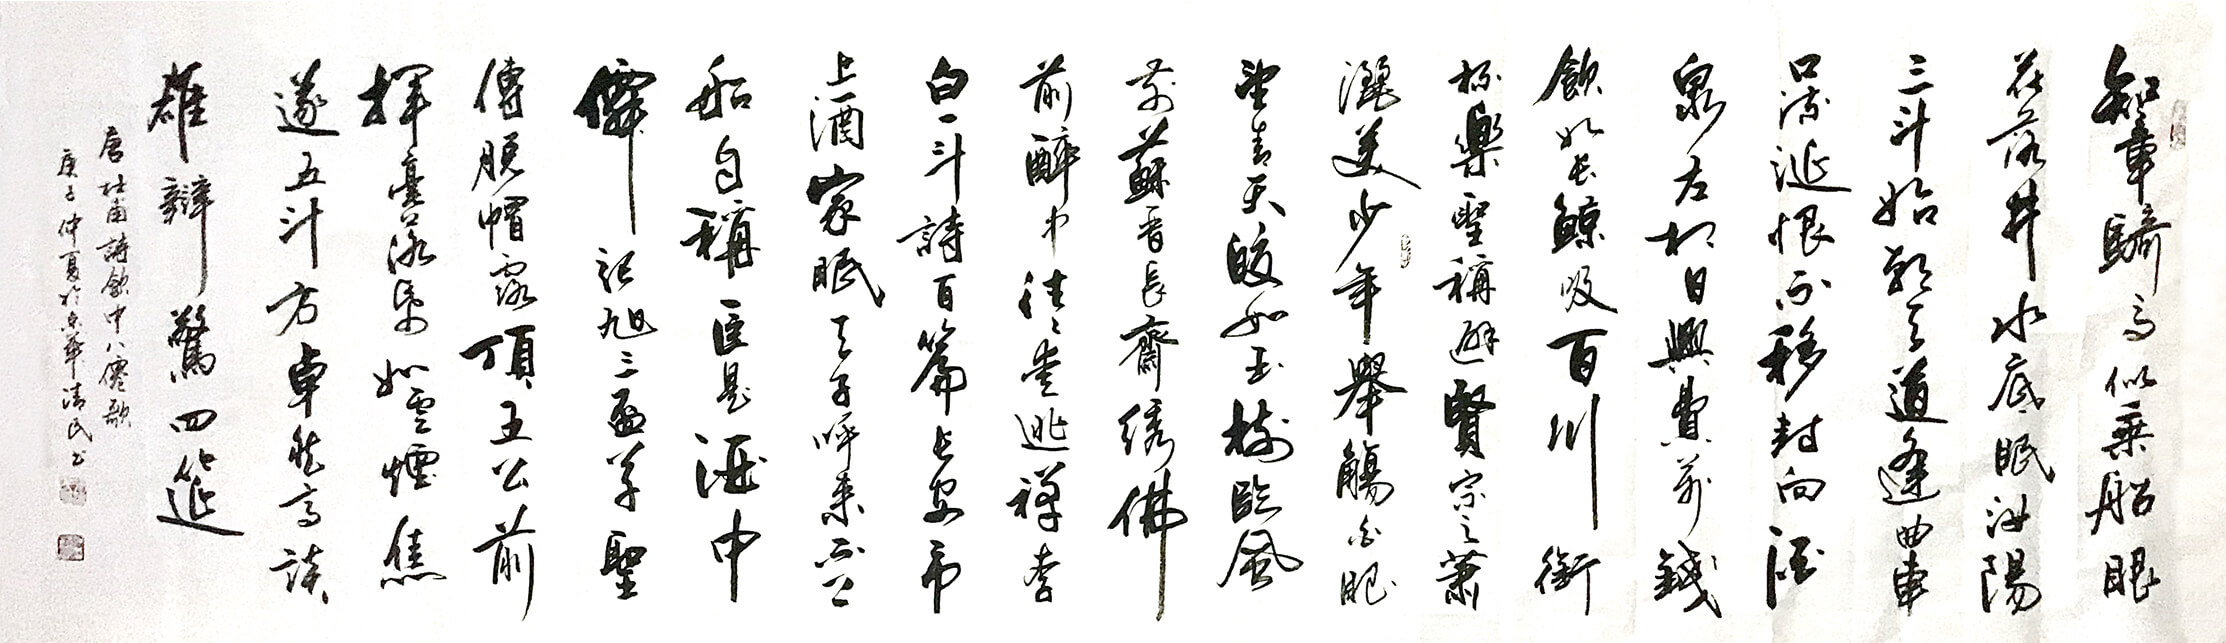 知章騎馬似乘船眼
花落井水底眠汝陽
三斗始朝天道逢曲車
口流涎恨不移封向酒
泉左相日興費萬錢
飲如長鯨吸百川銜
杯樂聖稱避賢宗之蕭
灑美少年舉觴白眼
望青天皎如玉樹臨風
前蘇晉長齋綉佛
前醉中往々愛逃禪李
白一斗詩百篇長安市
上酒家眠天子呼來不上
船自稱臣是酒中
僊張旭三杯草聖
傳脫帽露頂王公前
揮毫落紙如雲煙焦
遂五斗方卓然高談
雄辯驚四筵
唐杜甫詩飲中八僊歌
庚子仲夏於京華清民書